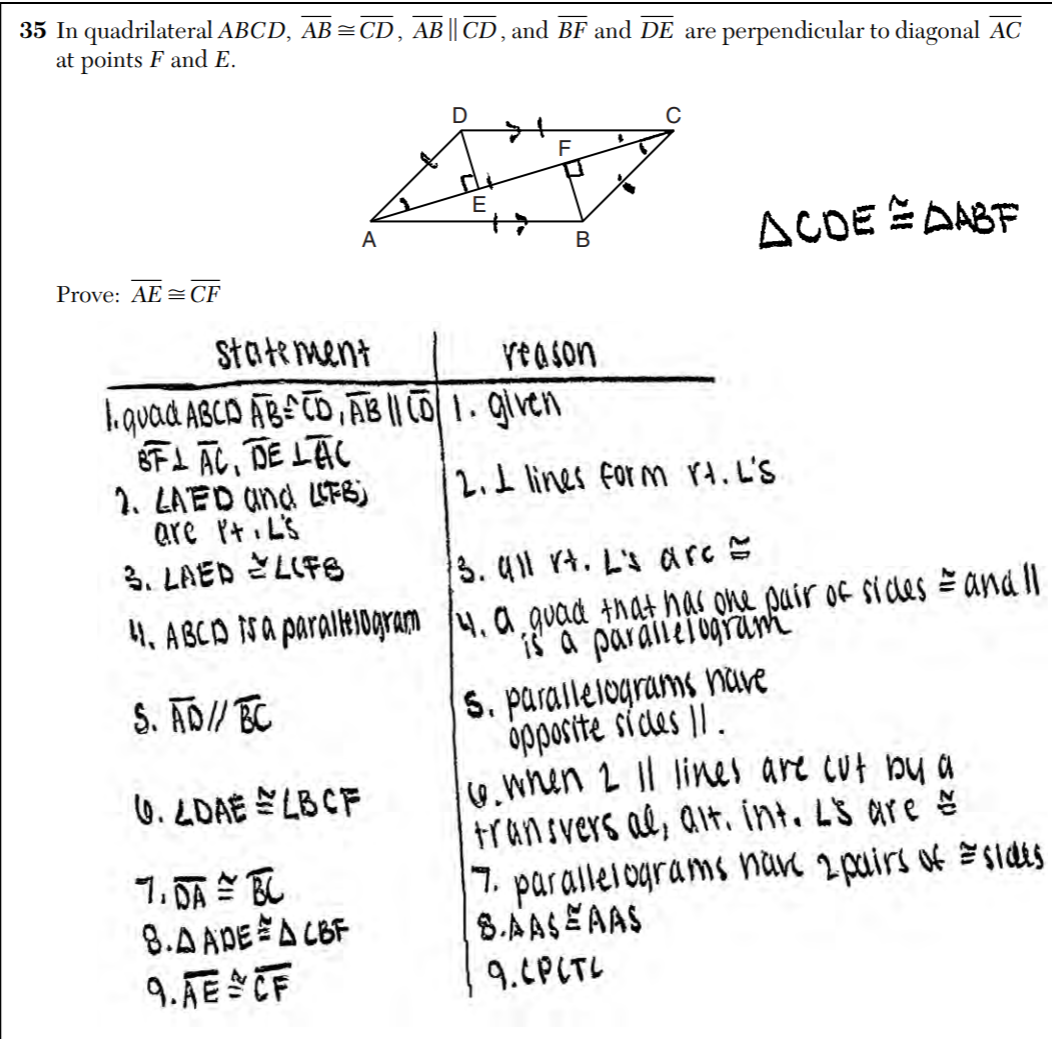 35 In quadrilateral ABCD, AB ≅ CD, AB ∥ CD, and BF and DE are perpendicular to diagonal AC
at points F and E.
D C
F
E
A B
△CDE ≅ △ABF
Prove: AE ≅ CF
statement reason
1. quad ABCD AB ≅ CD, AB ∥ CD 1. given
BF ⊥ AC, DE ⊥ AC
2. ∠AED and ∠CFB 2. ⊥ lines form rt. ∠'s
are rt. ∠'s
3. ∠AED ≅ ∠CFB 3. all rt. ∠'s are ≅
4. ABCD is a parallelogram 4. a quad that has one pair of sides ≅ and ∥
is a parallelogram
5. AD // BC 5. parallelograms have
opposite sides ∥.
6. ∠DAE ≅ ∠BCF 6. when 2 ∥ lines are cut by a
transversal, alt. int. ∠'s are ≅
7. DA ≅ BC 7. parallelograms have 2 pairs of ≅ sides
8. △ADE ≅ △CBF 8. AAS ≅ AAS
9. AE ≅ CF 9. CPCTC